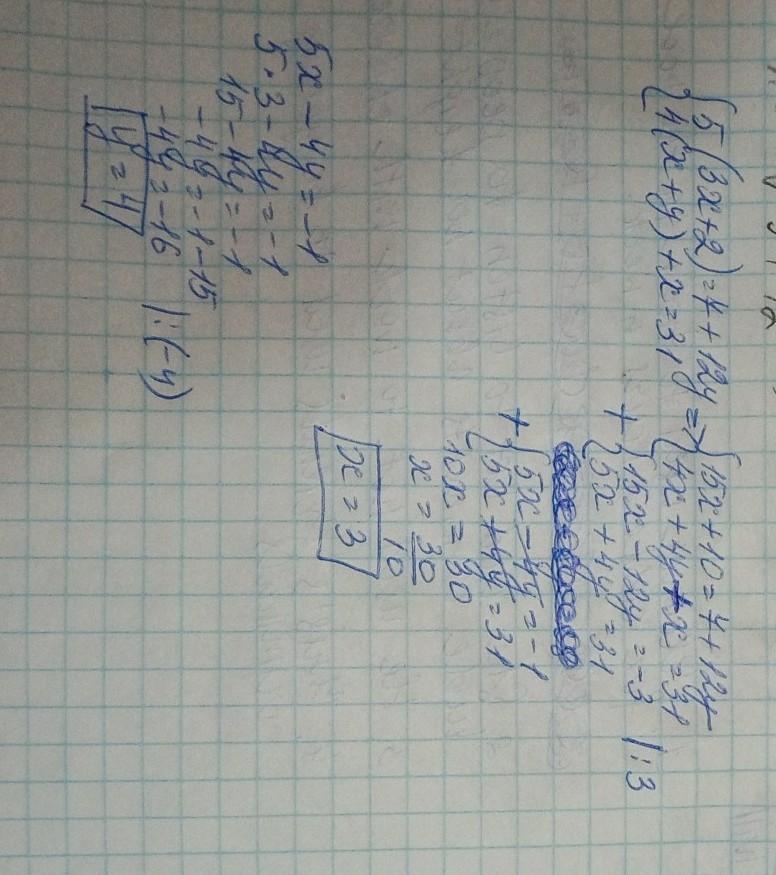 { 5(3x+2)=7+12y => { 15x+10=7+12y
{ 4(x+y)+x=31 { 4x+4y+x=31
+ { 15x-12y=-3 |:3
{ 5x+4y=31
+ { 5x-4y=-1
{ 5x+4y=31
10x=30
x=30/10
x=3
5x-4y=-1
5·3-4y=-1
15-4y=-1
-4y=-1-15
-4y=-16 |:(-4)
y=4